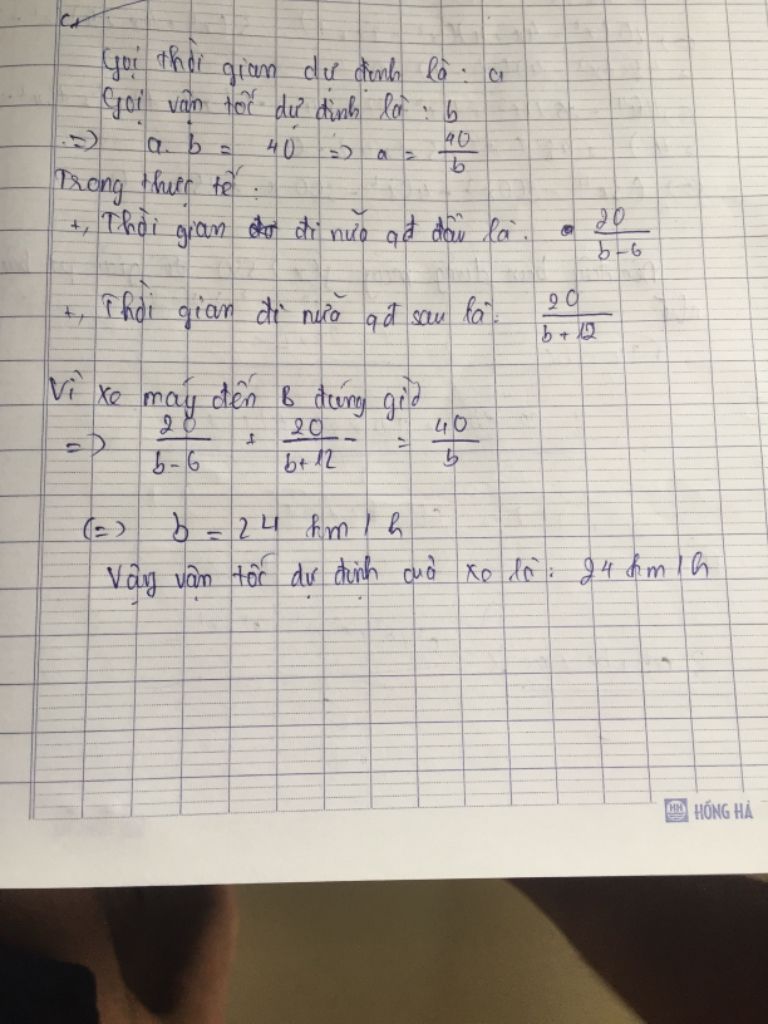 Gọi thời gian dự định là : a
Gọi vận tốc dự định là : b
=> a. b = 40 => a = 40/b
Trong thực tế :
+, Thời gian đi nửa qđ đầu là. 20/b-6
+, Thời gian đi nửa qđ sau là: 20/b+12
Vì xe máy đến B đúng giờ
=> 20/b-6 + 20/b+12 = 40/b
(=> b = 24 km/h
Vậy vận tốc dự định của xe là: 24 km/h
HH HỒNG HÀ